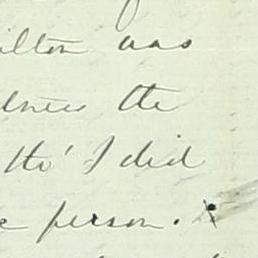 ilton was
the
tho' I did
person.